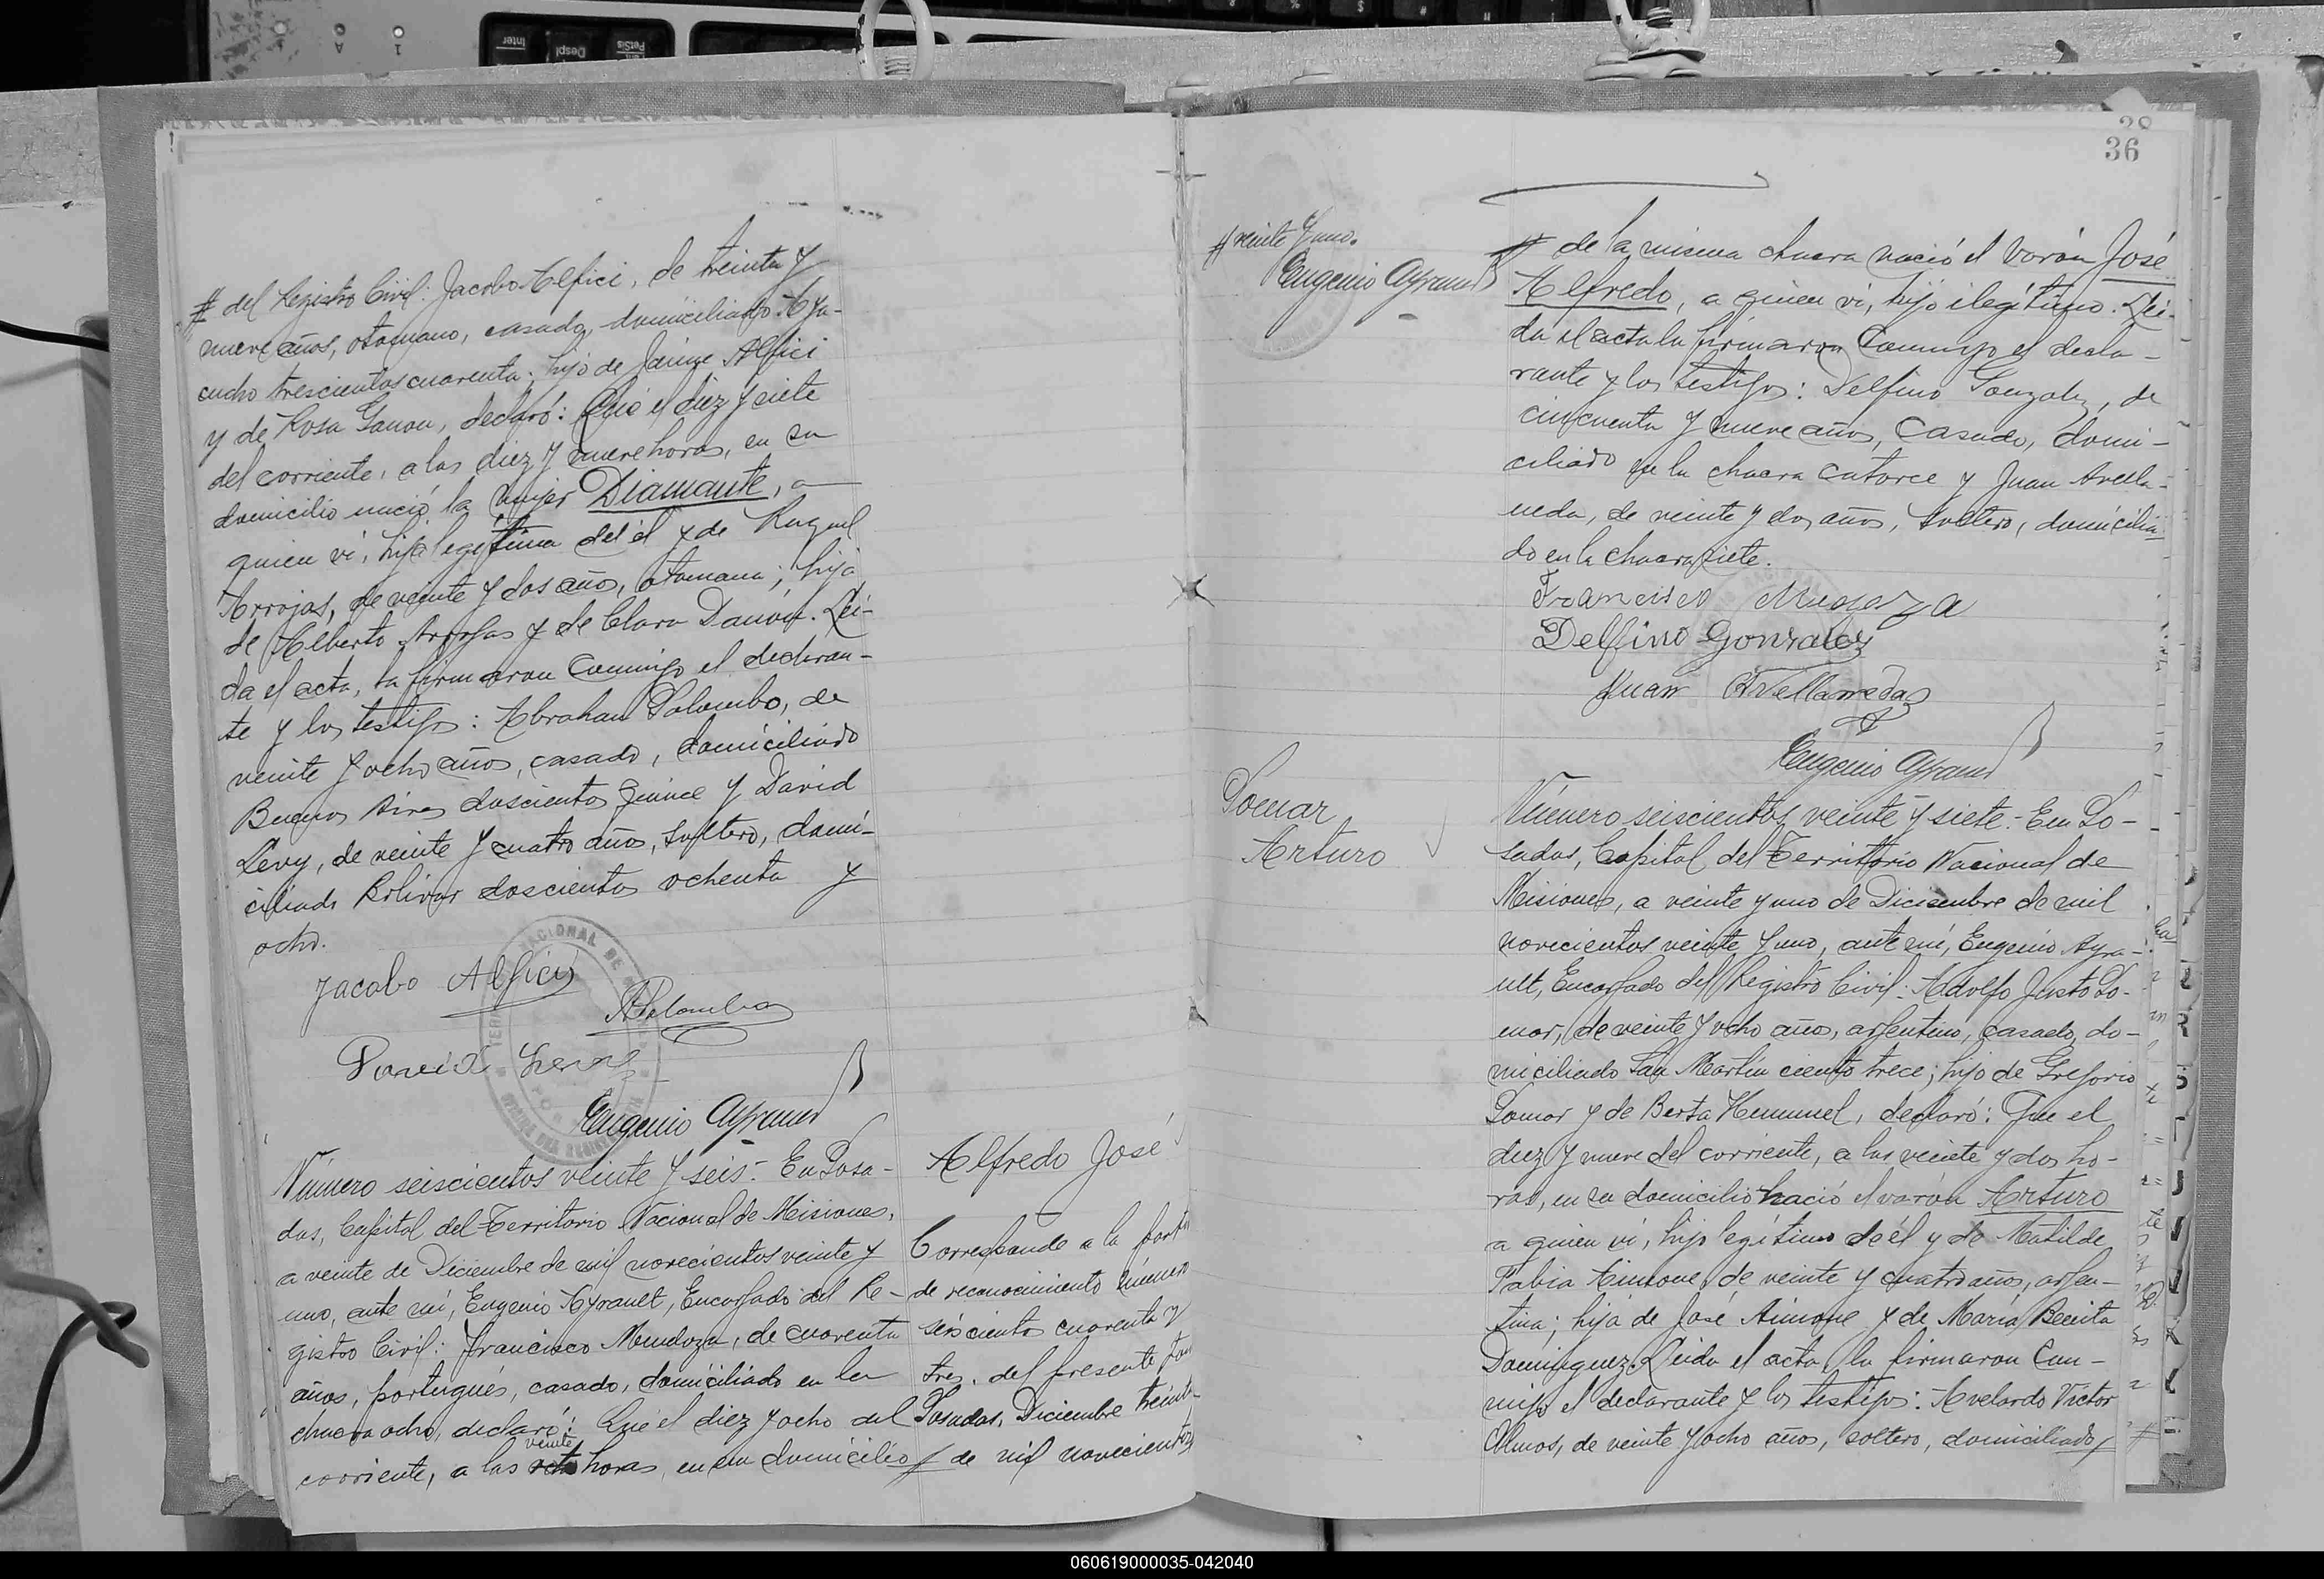 # del Registro Civil: Jacobo Alfici, de treinta y
nueve años, otomano, casado, domiciliado Aya-
cucho trescientos cuarenta; hijo de Jaime Alfici
y de Rosa Ganon, declaró: Que el diez y siete
del corriente, a las diez y nueve horas, en su
domicilio nació la mujer Diamante, a
quien vi, hija legítima del él y de Raquel
Arrojas, de veinte y dos años, otomana; hija
de Alberto Arrojas y de Clara Danón. Leí-
da el acta, la firmaron conmigo el declaran-
te y los testigos: Abraham Palombo, de
veinte y ocho años, casado, domiciliado
Buenos Aires doscientos quince y David
Levy, de veinte y cuatro años, soltero, domi-
ciliado Bolívar doscientos ochenta y
ocho.
Jacobo Alfici
APalombo
David Levy
Eugenio Ayrault
Número seiscientos veinte y seis.- En Posa-
das, Capital del Territorio Nacional de Misiones,
a veinte de Diciembre de mil novecientos veinte y
uno, ante mí, Eugenio Ayrault, Encargado del Re-
gistro Civil: Francisco Mendoza, de cuarenta
años, portugués, casado, domiciliado en la
chacra ocho, declaró: Que el diez y ocho del
veinte
corriente, a las horas, en su domicilio #
Alfredo José
Corresponde a la
de reconocimiento número
seiscientos cuarenta y
tres, del presente
Posadas, Diciembre
de mil novecientos
36
# veinte y uno.
Eugenio Ayrault
# de la misma chacra nació el varón José
Alfredo, a quien vi, hijo ilegítimo. Leí-
da el acta la firmaron conmigo el decla-
rante y los testigos: Delfino Gonzalez, de
cincuenta y nueve años, casado, domi-
ciliado en la chacra catorce y Juan Avella-
neda, de veinte y dos años, soltero, domicilia
do en la chacra siete.
Francisco
Delfino Gonzalez
Juan Avellanedas
Eugenio Ayrault
Pomar
Arturo
Número seiscientos veinte y siete.- En Po-
sadas, Capital del Territorio Nacional de
Misiones, a veinte y uno de Diciembre de mil
novecientos veinte y uno, ante mí, Eugenio Ayra-
ult, Encargado del Registro Civil: Adolfo Justo Po-
mar, de veinte y ocho años, argentino, casado, do-
miciliado San Martín ciento trece; hijo de Gregorio
Pomar y de Berta Hemmel, declaró: Que el
diez y nueve del corriente, a las veinte y dos ho-
ras, en su domicilio nació el varón Arturo
a quien vi, hijo legítimo de él y de Matilde
Fabia Aimone, de veinte y cuatro años, argen-
tina; hija de José Aimone y de María Benita
Dominguez. Leída el acta, la firmaron con-
migo el declarante y los testigos: Avelardo Victor
Olmos, de veinte y ocho años, soltero, domiciliado #
060619000035-042040